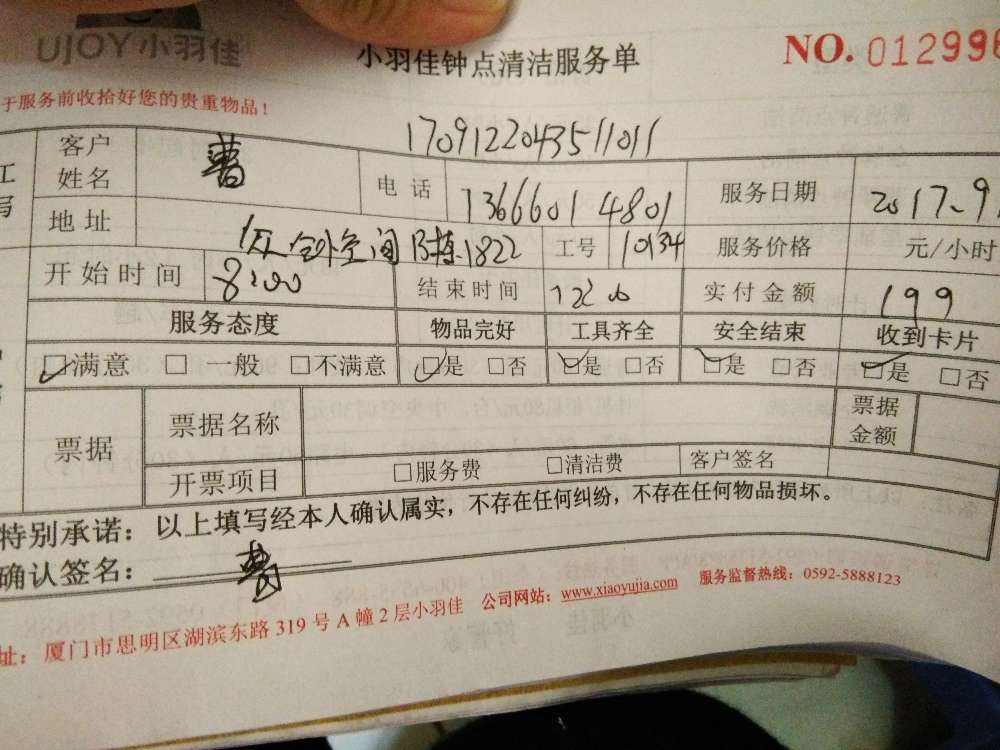 UJOY小羽佳
小羽佳钟点清洁服务单
NO. 012996
于服务前收拾好您的贵重物品！
170912204351 1011
客户姓名 曹 电话 13666014801 服务日期 2017.9.
地址 空间B栋1822 工号 10134 服务价格 元/小时
开始时间 8:00 结束时间 12:00 实付金额 199
服务态度 物品完好 工具齐全 安全结束 收到卡片
☑满意 □一般 □不满意 ☑是 □否 ☑是 □否 ☑是 □否 ☑是 □否
票据 票据名称 票据金额
开票项目 □服务费 □清洁费 客户签名
特别承诺：以上填写经本人确认属实，不存在任何纠纷，不存在任何物品损坏。
确认签名：曹
址：厦门市思明区湖滨东路319号A幢2层小羽佳 公司网站：www.xiaoyujia.com 服务监督热线：0592-5888123